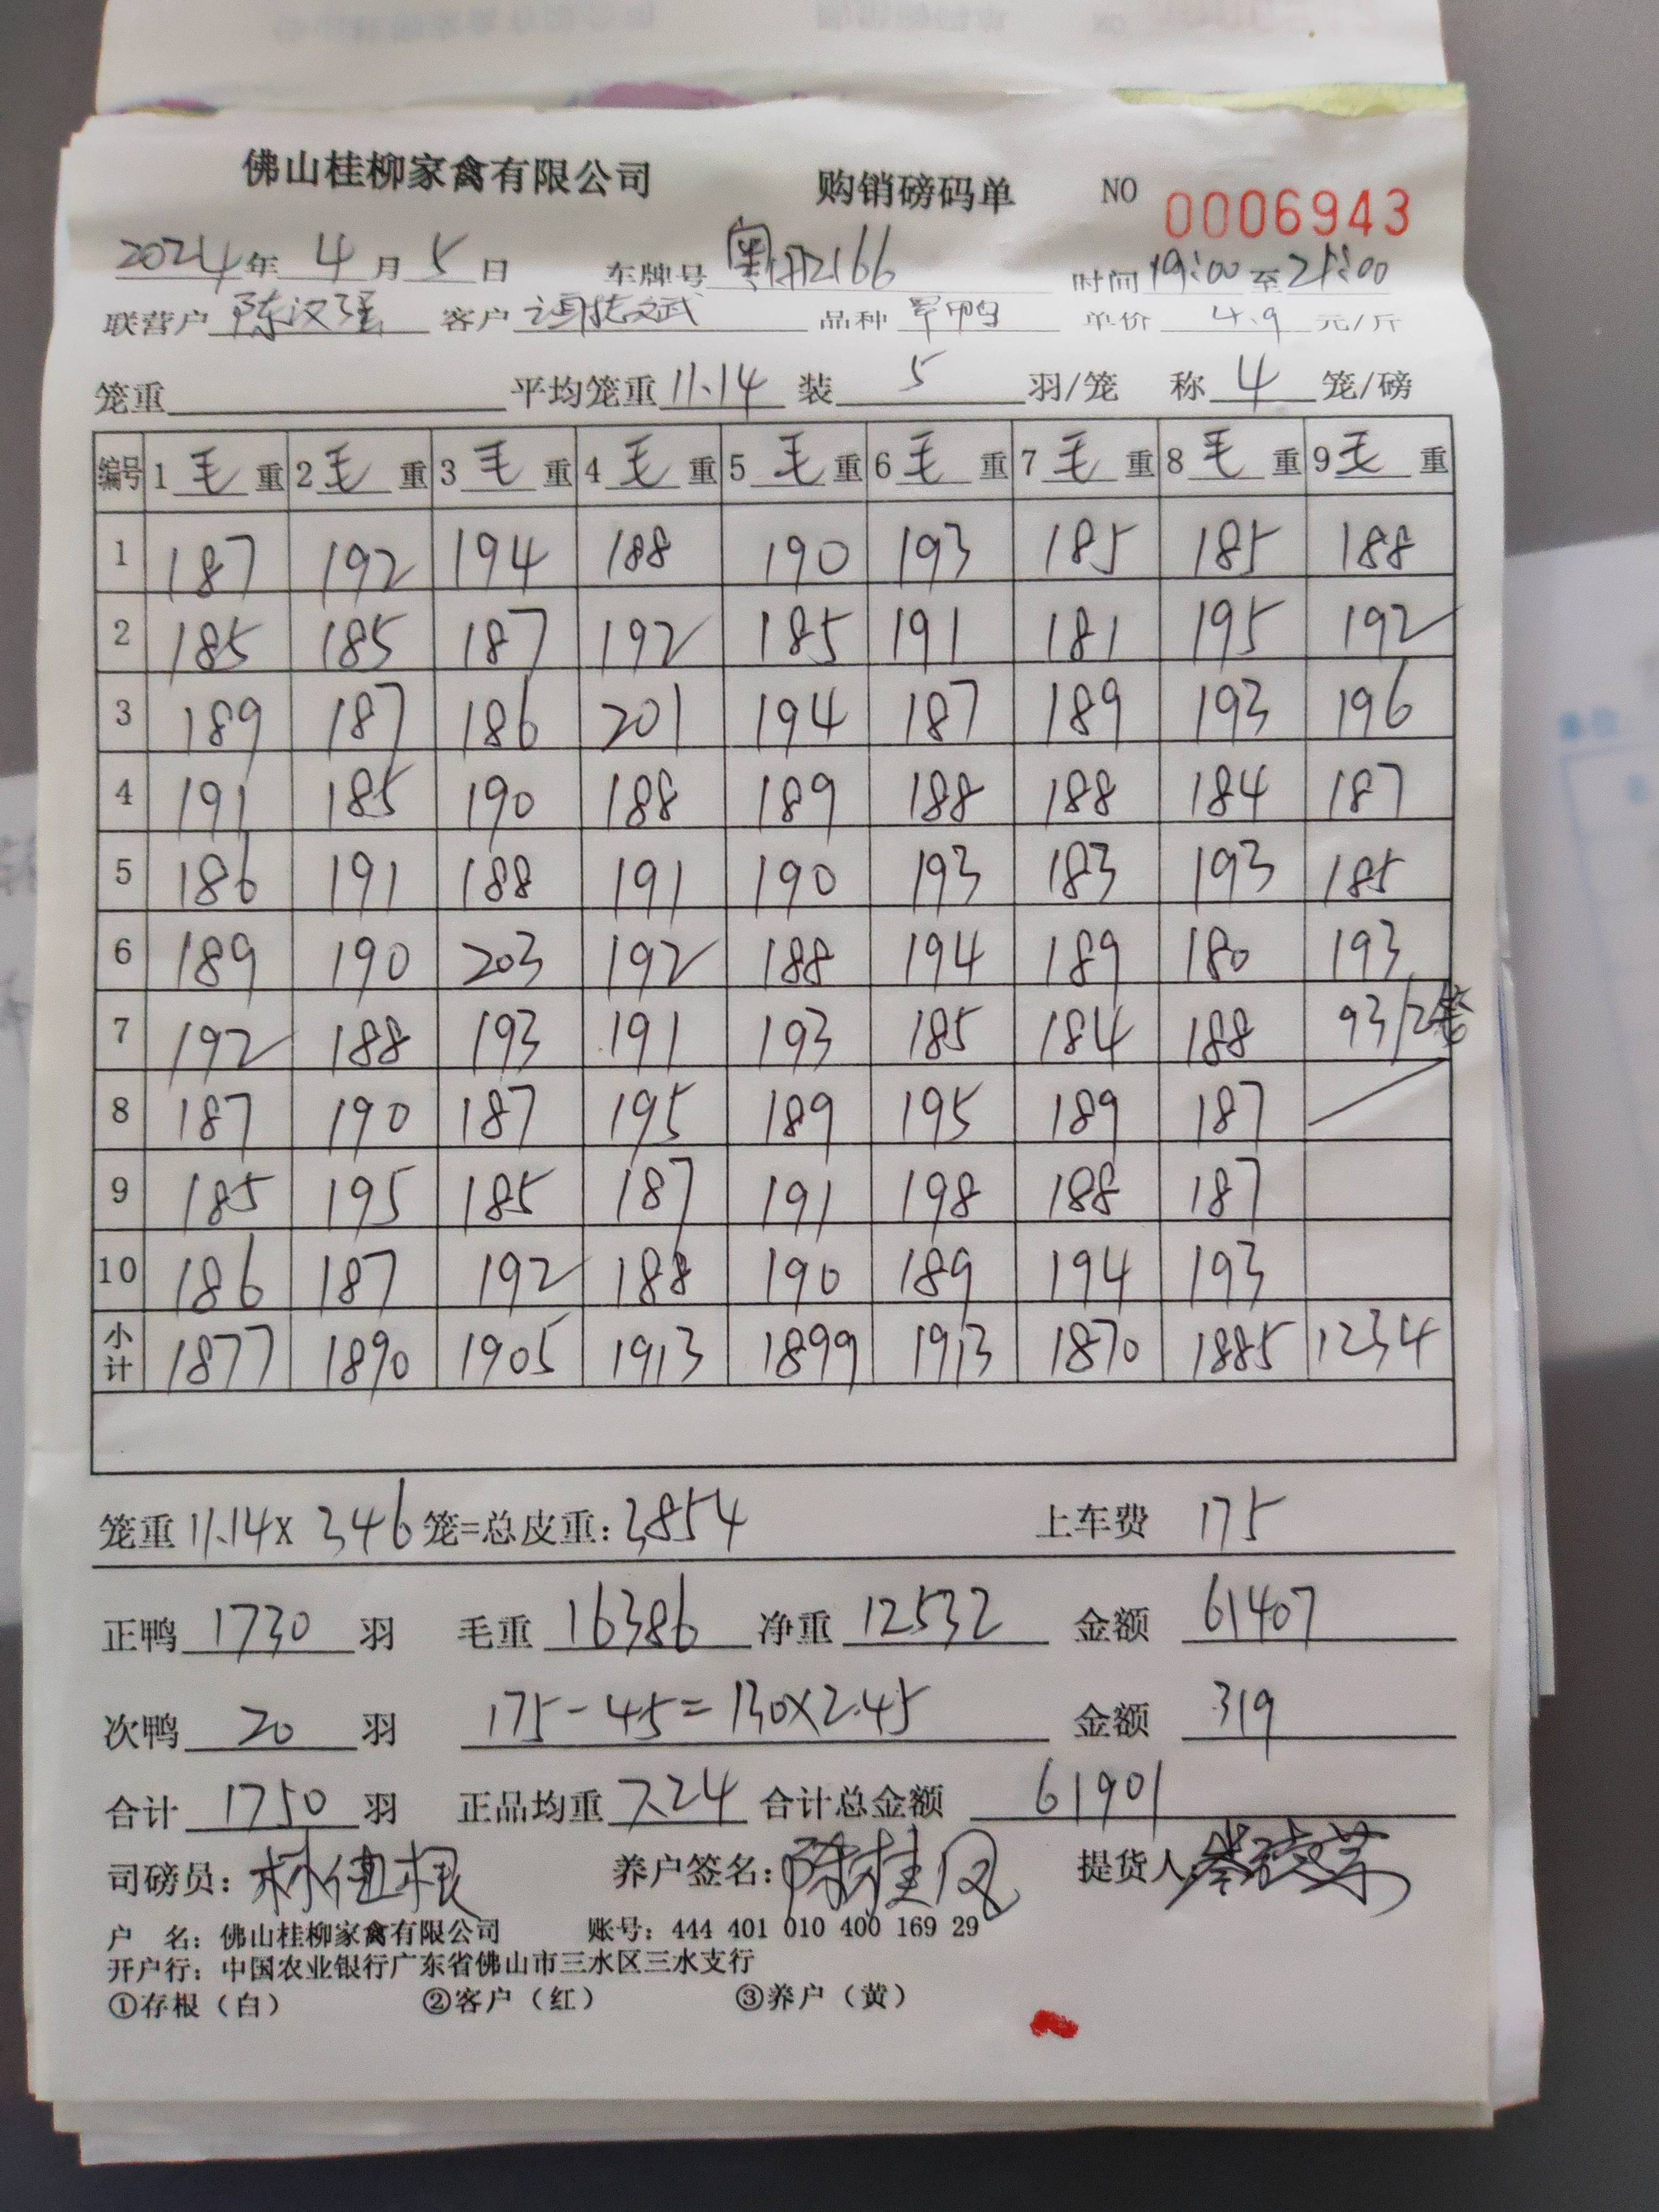 佛山桂柳家禽有限公司 购销磅码单 NO 0006943
2024年 4月 5日 车牌号 粤 2166 时间 19:00 至 21:00
联营户 陈汉强 客户 斌 品种 军鸭 单价 4.9 元/斤
笼重 平均笼重 11.14 装 5 羽/笼 称 4 笼/磅
编号 1 毛 重 2 毛 重 3 毛 重 4 毛 重 5 毛 重 6 毛 重 7 毛 重 8 毛 重 9 毛 重
1 187 192 194 188 190 193 185 185 188
2 185 185 187 192 185 191 181 195 192
3 189 187 186 201 194 187 189 193 196
4 191 185 190 188 189 188 188 184 187
5 186 191 188 191 190 193 183 193 185
6 189 190 203 192 188 194 189 180 193
7 192 188 193 191 193 185 184 188 93/2笼
8 187 190 187 195 189 195 189 187
9 185 195 185 187 191 198 188 187
10 186 187 192 188 190 189 194 193
小计 1877 1890 1905 1913 1899 1913 1870 1885 1234
笼重 11.14 X 346 笼=总皮重: 3854 上车费 175
正鸭 1730 羽 毛重 16386 净重 12532 金额 61407
次鸭 20 羽 175-45=130X2.45 金额 319
合计 1750 羽 正品均重 7.24 合计总金额 61901
司磅员: 林伟根 养户签名: 陈桂凤 提货人:
户 名: 佛山桂柳家禽有限公司 账号: 444 401 010 400 169 29
开户行: 中国农业银行广东省佛山市三水区三水支行
①存根（白） ②客户（红） ③养户（黄）